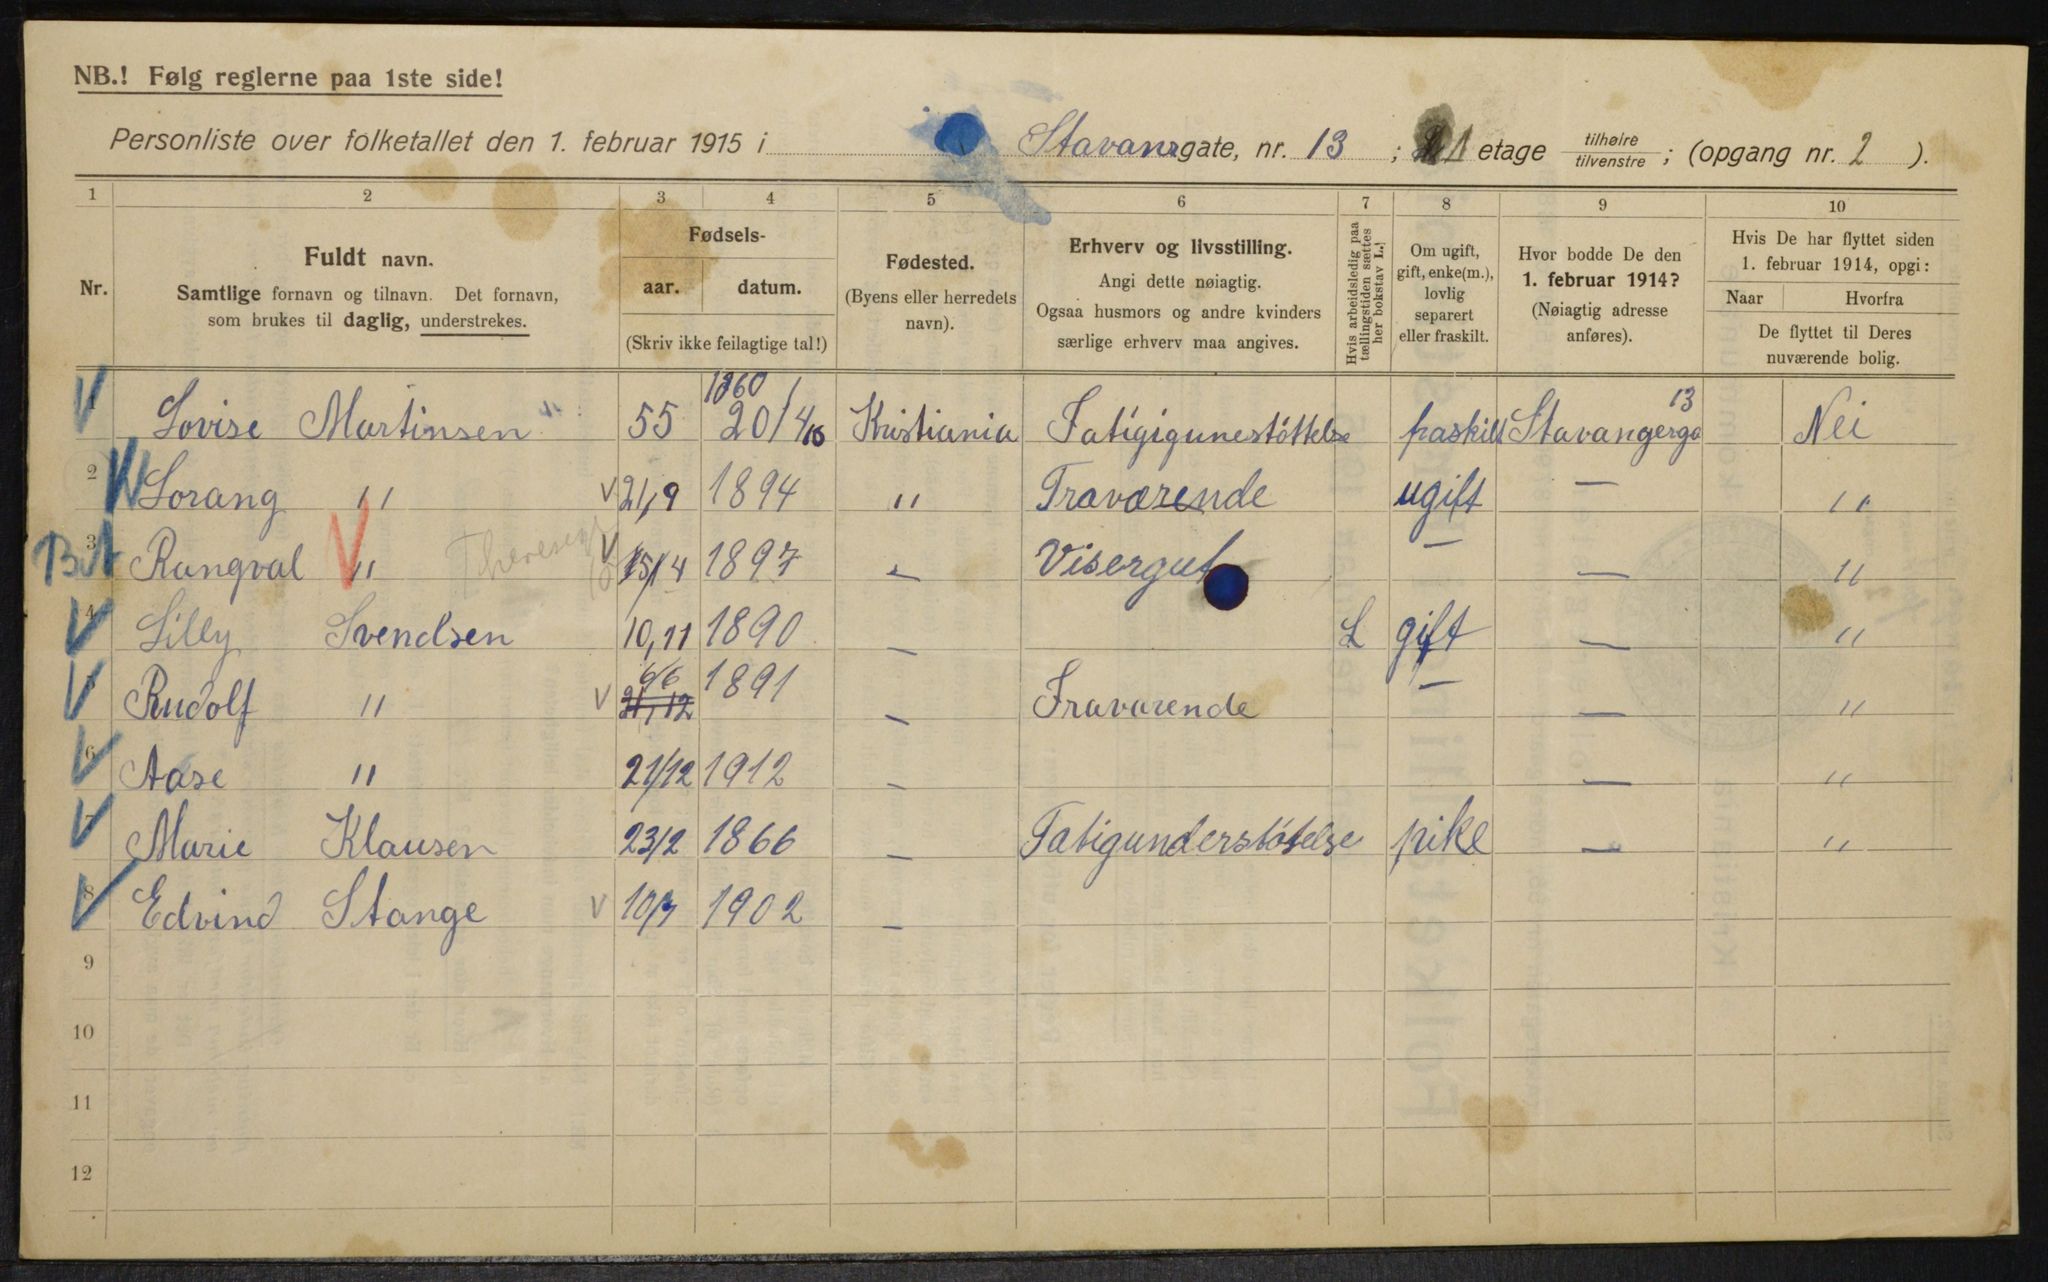 NB.! Følg reglerne paa 1ste side!
Personliste over folketallet den 1. februar 1915 i Stavangergate, nr. 13 ; 1 etage tilhøire tilvenstre ; (opgang nr. 2 ).
1 2 3 4 5 6 7 8 9 10
Nr.
Fuldt navn.
Samtlige fornavn og tilnavn. Det fornavn,
som brukes til daglig, understrekes.
Fødsels-
aar. datum.
(Skriv ikke feilagtige tal!)
Fødested.
(Byens eller herredets
navn).
Erhverv og livsstilling.
Angi dette nøiagtig.
Ogsaa husmors og andre kvinders
særlige erhverv maa angives.
Hvis arbeidsledig paa
tællingstiden sættes
her bokstav L.
Om ugift,
gift, enke(m.),
lovlig
separert
eller fraskilt.
Hvor bodde De den
1. februar 1914?
(Nøiagtig adresse
anføres).
Hvis De har flyttet siden
1. februar 1914, opgi:
Naar Hvorfra
De flyttet til Deres
nuværende bolig.
1860 13
Lovise Martinsen 55 20/4 Kristiania Fatigigunestöttelse fraskilt Stavangerga Nei
2 Lorang " 21,9 1894 " Fraværende ugift — "
3 Rangval " Theresesg 15/4 1897 — Visergut — — "
4 Lilly Svendsen 10,11 1890 — L gift — "
6/6
5 Rudolf " 21,12 1891 — Fravarende — — "
6 Aase " 21/12 1912 — — "
7 Marie Klausen 23/2 1866 — Fatigunderstöttelse pike — "
8 Edvind Stange 10/7 1902 —
9
10
11
12